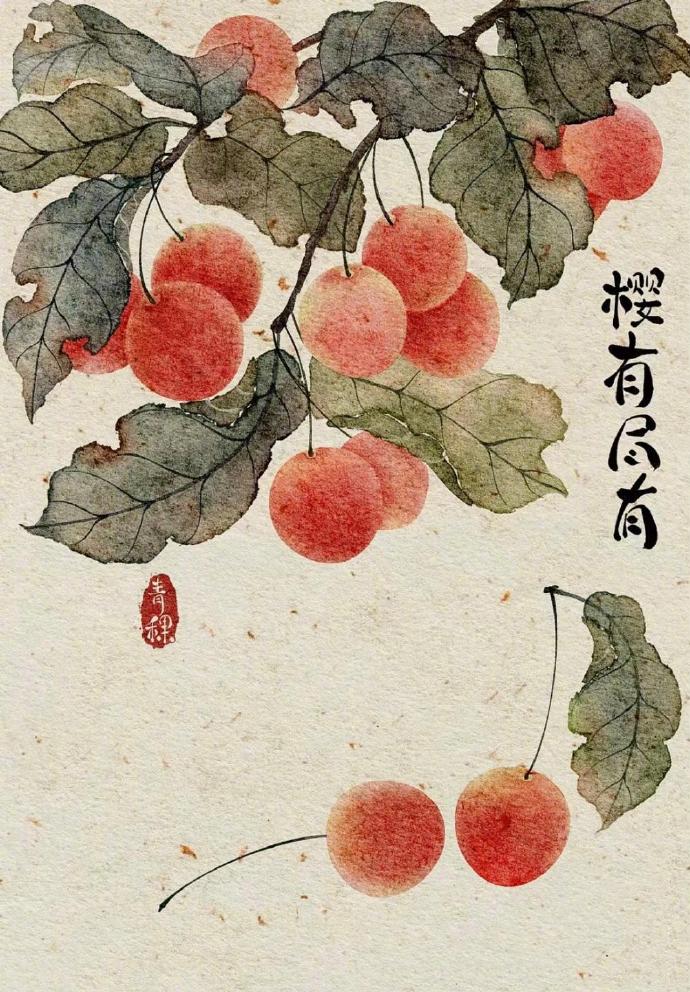 樱有尽有
青稞